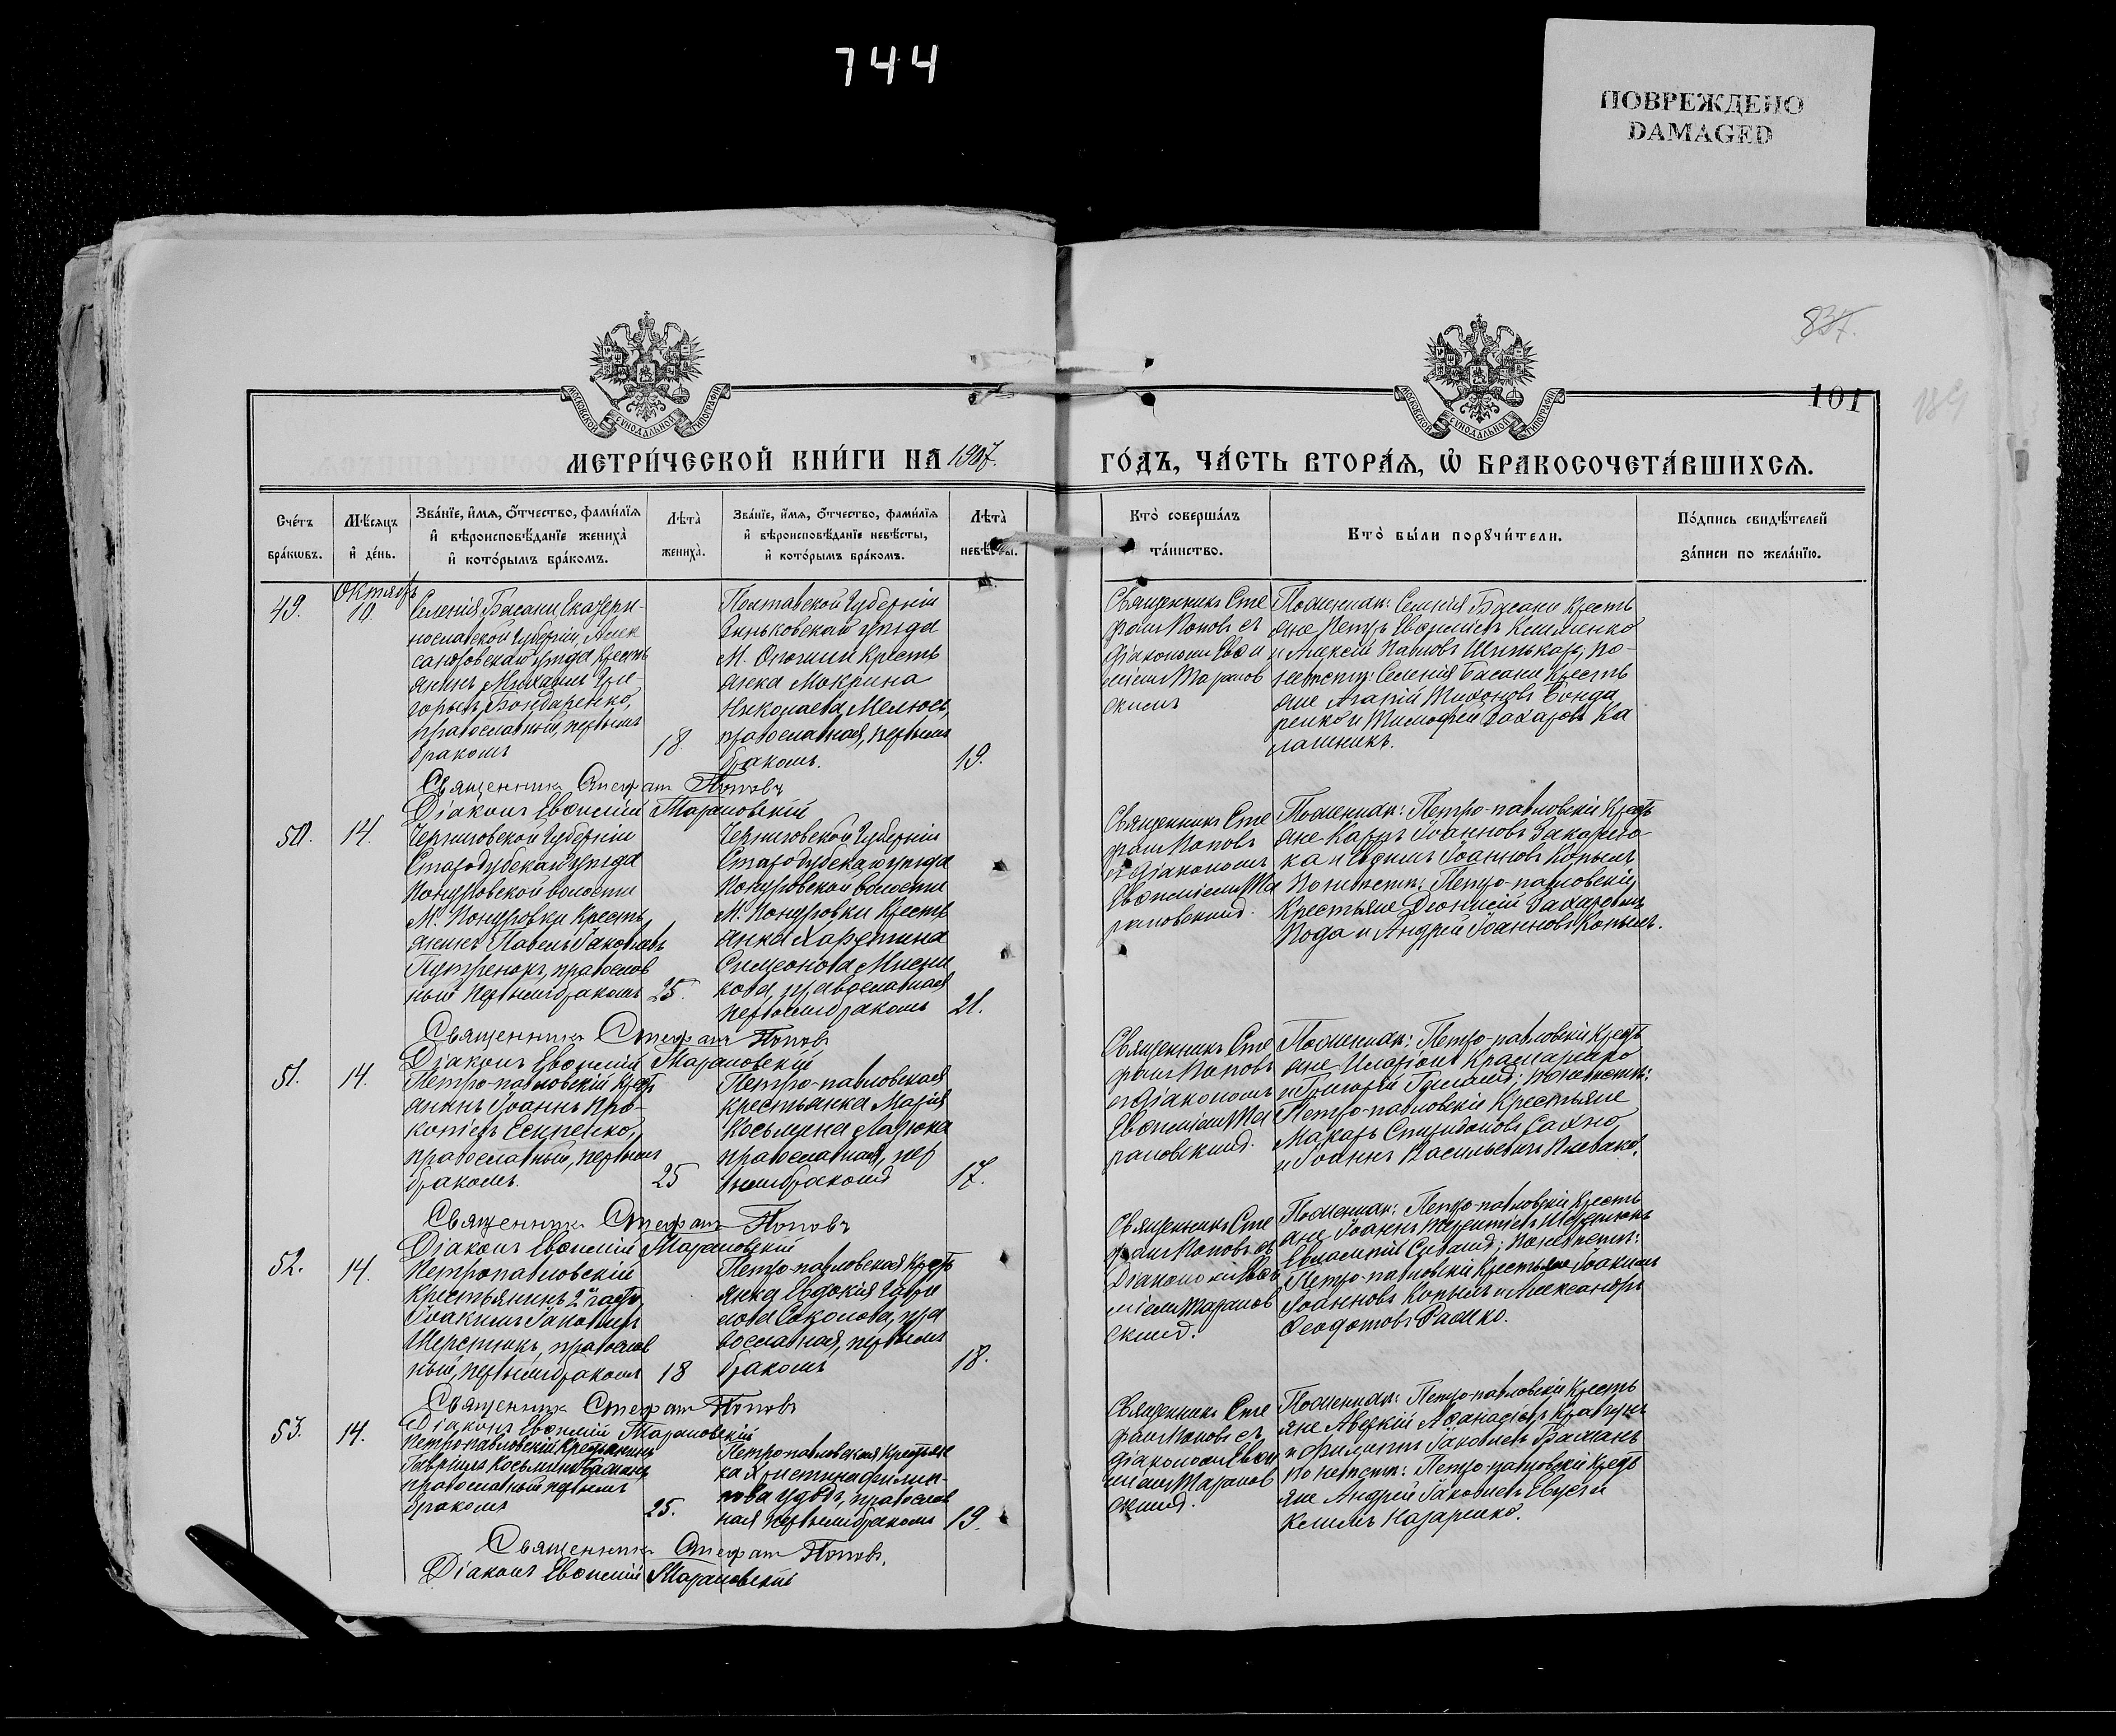 744
ПОВРЕЖДЕНО
DAMAGED
837.
101
МОСКОВСКОЙ СУНОДАЛЬНОЙ ТИПОГРАФІИ
МОСКОВСКОЙ СУНОДАЛЬНОЙ ТИПОГРАФІИ
МЕТРИ́ЧЕСКОЙ КНИ́ГИ НА 1907.
ГО́ДЪ, ЧА́СТЬ ВТОРА́Ѧ, Ѡ БРАКОСОЧЕТА́ВШИХСѦ.
Сче́тъ
бра́кѡвъ.
Мѣ́сѧцъ
и҆ де́нь.
Зва́нїе, и҆́мѧ, ѻ҆́тчество, фами́лїѧ
и҆ вѣроисповѣ́данїе жениха̀
и҆ кото́рымъ бра́комъ.
Лѣта̀
жениха̀.
Зва́нїе, и҆́мѧ, ѻ҆́тчество, фами́лїѧ
и҆ вѣроисповѣ́данїе невѣ́сты,
и҆ кото́рымъ бра́комъ.
Лѣта̀
невѣ́сты.
Кто̀ соверша́лъ
та́инство.
Кто̀ бы́ли порꙋчи́тели.
По́дпись свидѣ́телей
за́писи по жела́нїю.
49.
Октябрь
10.
Селенія Басани Екатери-
нославской Губерніи, Алек
сандровскаго уѣзда Кресть
янинъ Михаилъ Гри-
горьевъ Бондаренко,
православный, первымъ
бракомъ
18
Полтавской Губерніи
Зиньковскаго уѣзда
М. Опошни Кресть
янка Мокрина
Николаева Мелюсъ,
православная, первымъ
бракомъ.
19.
Священникъ Сте
фанъ Поповъ съ
діакономъ Евѳи
міемъ Маранов
скимъ
По женихѣ: Селенія Басани Кресть
яне Петръ Евѳиміевъ Клименко
и Алексій Павловъ Шинькарь; по
невѣстѣ: Селенія Басани Кресть
яне Агапій Тихоновъ Бонда
ренко и Тимофей Захаровъ Ка
лашникъ.
Священникъ Стефанъ Поповъ
Діаконъ Евѳимій Марановскій
50.
14.
Черниговской Губерніи
Стародубскаго уѣзда
Понуровской волости
М. Понуровки Кресть
янинъ Павелъ Іаковлевъ
православ
ный первымъ бракомъ
25.
Черниговской Губерніи
Стародубскаго уѣзда
Понуровской волости
М. Понуровки Кресть
янка Харитина
Симеонова Мисни
кова, православная
первымъ бракомъ
21.
Священникъ Сте
фанъ Поповъ
съ діакономъ
Евѳиміемъ Ма
рановскимъ.
По женихѣ: Петро-павловскіе Кресть
яне Карпъ Іоанновъ
ка и Іоанновъ Копылъ
По невѣстѣ: Петро-павловскіе
Крестьяне Діонисій Захаровъ
Кода и Андрей Іоанновъ Копылъ.
Священникъ Стефанъ Поповъ
Діаконъ Евѳимій Марановскій
51.
14.
Петро-павловскій Крест
янинъ Іоаннъ Про-
копіевъ Есипенко,
православный, первымъ
бракомъ.
25
Петро-павловская
крестьянка Марія
Косьмина Мазюка
православная, пер
вымъ бракомъ
17.
Священникъ Сте
фанъ Поповъ
съ діакономъ
Евѳиміемъ Ма
рановскимъ.
По женихѣ: Петро-павловскіе Кресть
яне Иларіонъ Крамаренко
и Григорій; по невѣстѣ:
Петро-павловскіе Крестьяне
Макаръ Спиридоновъ Сахно
и Іоаннъ Васильевъ Плевако.
Священникъ Стефанъ Поповъ
Діаконъ Евѳимій Марановскій
52.
14.
Петропавловскій
крестьянинъ 2й части
Іоакимъ Іаковлевъ
Шерстюкъ, православ
ный, первымъ бракомъ
18
Петро-павловская Крест
янка Евдокія
Соколова, пра
вославная, первымъ
бракомъ
18.
Священникъ Сте
фанъ Поповъ съ
Діакономъ Евѳи
міемъ Маранов
скимъ.
По женихѣ: Петро-павловскіе Кресть
яне Іоаннъ Терентіевъ Шерстюкъ
и Евлампій; по невѣстѣ:
Петро-павловскіе Крестьяне Іоакимъ
Іоанновъ Копылъ и Александръ
Ѳеодотовъ.
Священникъ Стефанъ Поповъ
Діаконъ Евѳимій Марановскій
53.
14.
Петропавловскій Крестьянинъ
Гавріилъ Косьминъ Баштанъ
православный первымъ
бракомъ
25.
Петропавловская Крестьян
ка Христина Филип-
пова, православ
ная первымъ бракомъ
19.
Священникъ Сте
фанъ Поповъ съ
діакономъ Евѳи
міемъ Маранов
скимъ.
По женихѣ: Петро-павловскіе Кресть
яне Аверкій Аѳанасіевъ Кравчунъ
и Филиппъ Іаковлевъ Баштанъ
по невѣстѣ: Петро-павловскіе Кресть
яне Андрей Іаковлевъ Евусъ и
Климъ Назаренко.
Священникъ Стефанъ Поповъ.
Діаконъ Евѳимій Марановскій